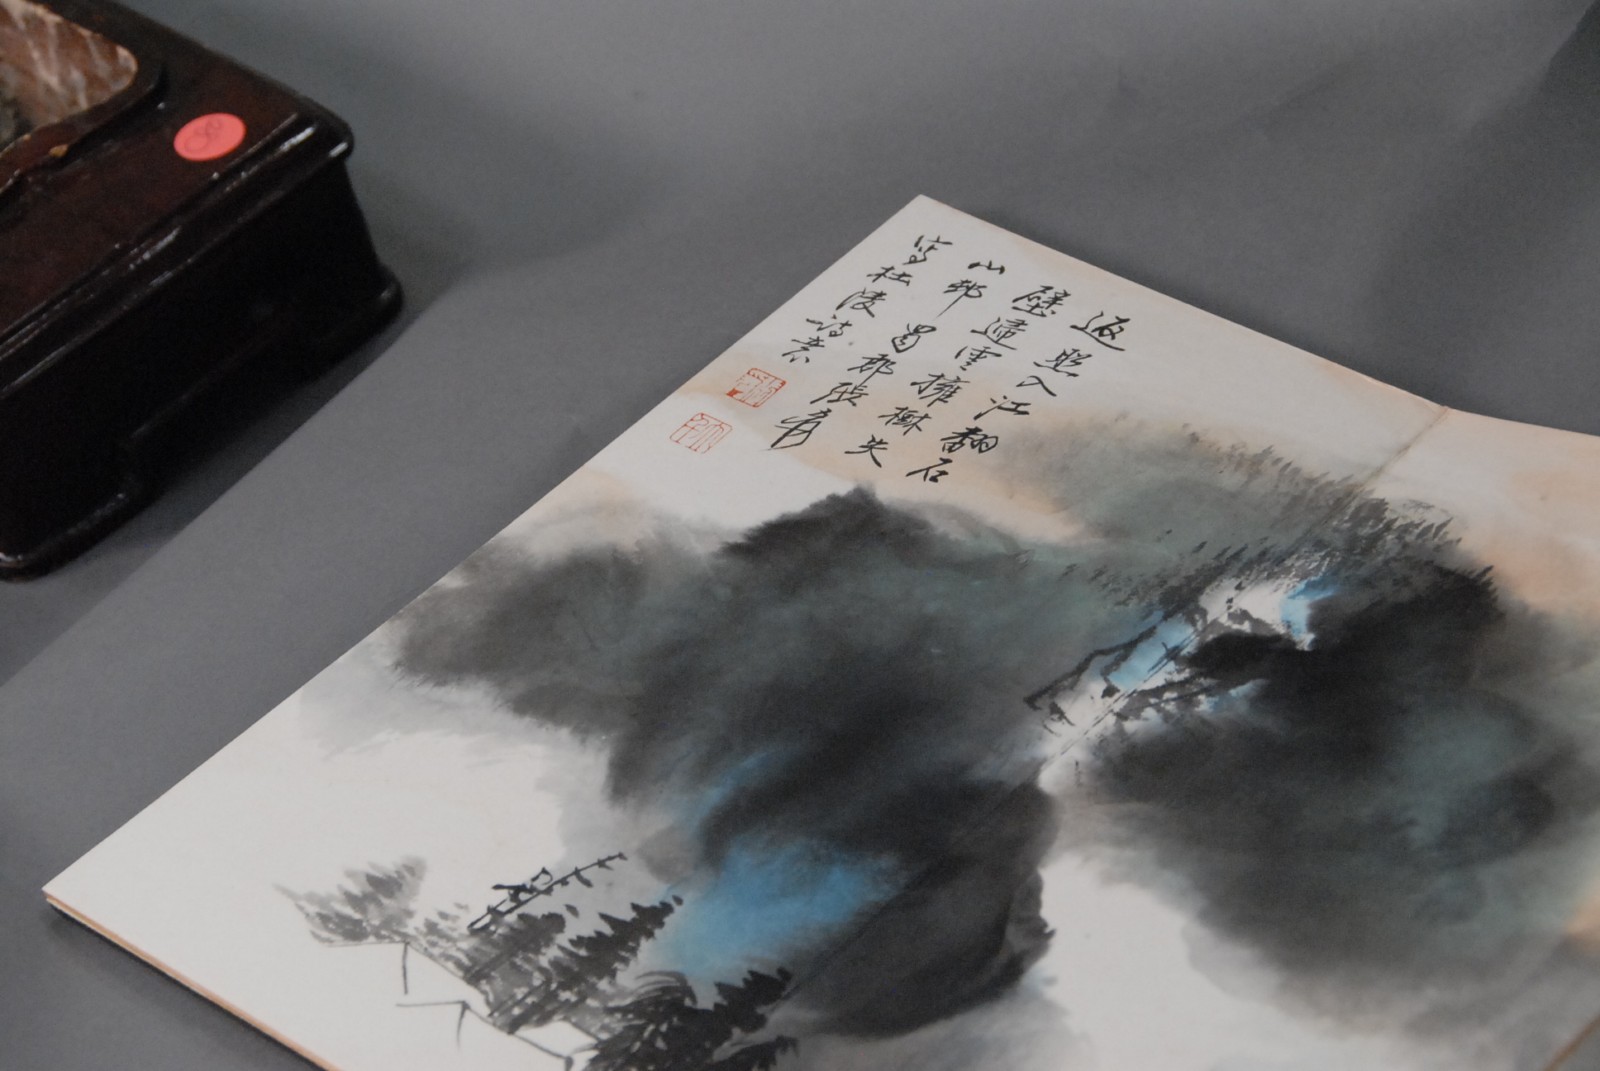 返照入江翻石
壁歸雲擁樹失
山邨 蜀郡張爰
寫杜陵詩意
張爰
大千